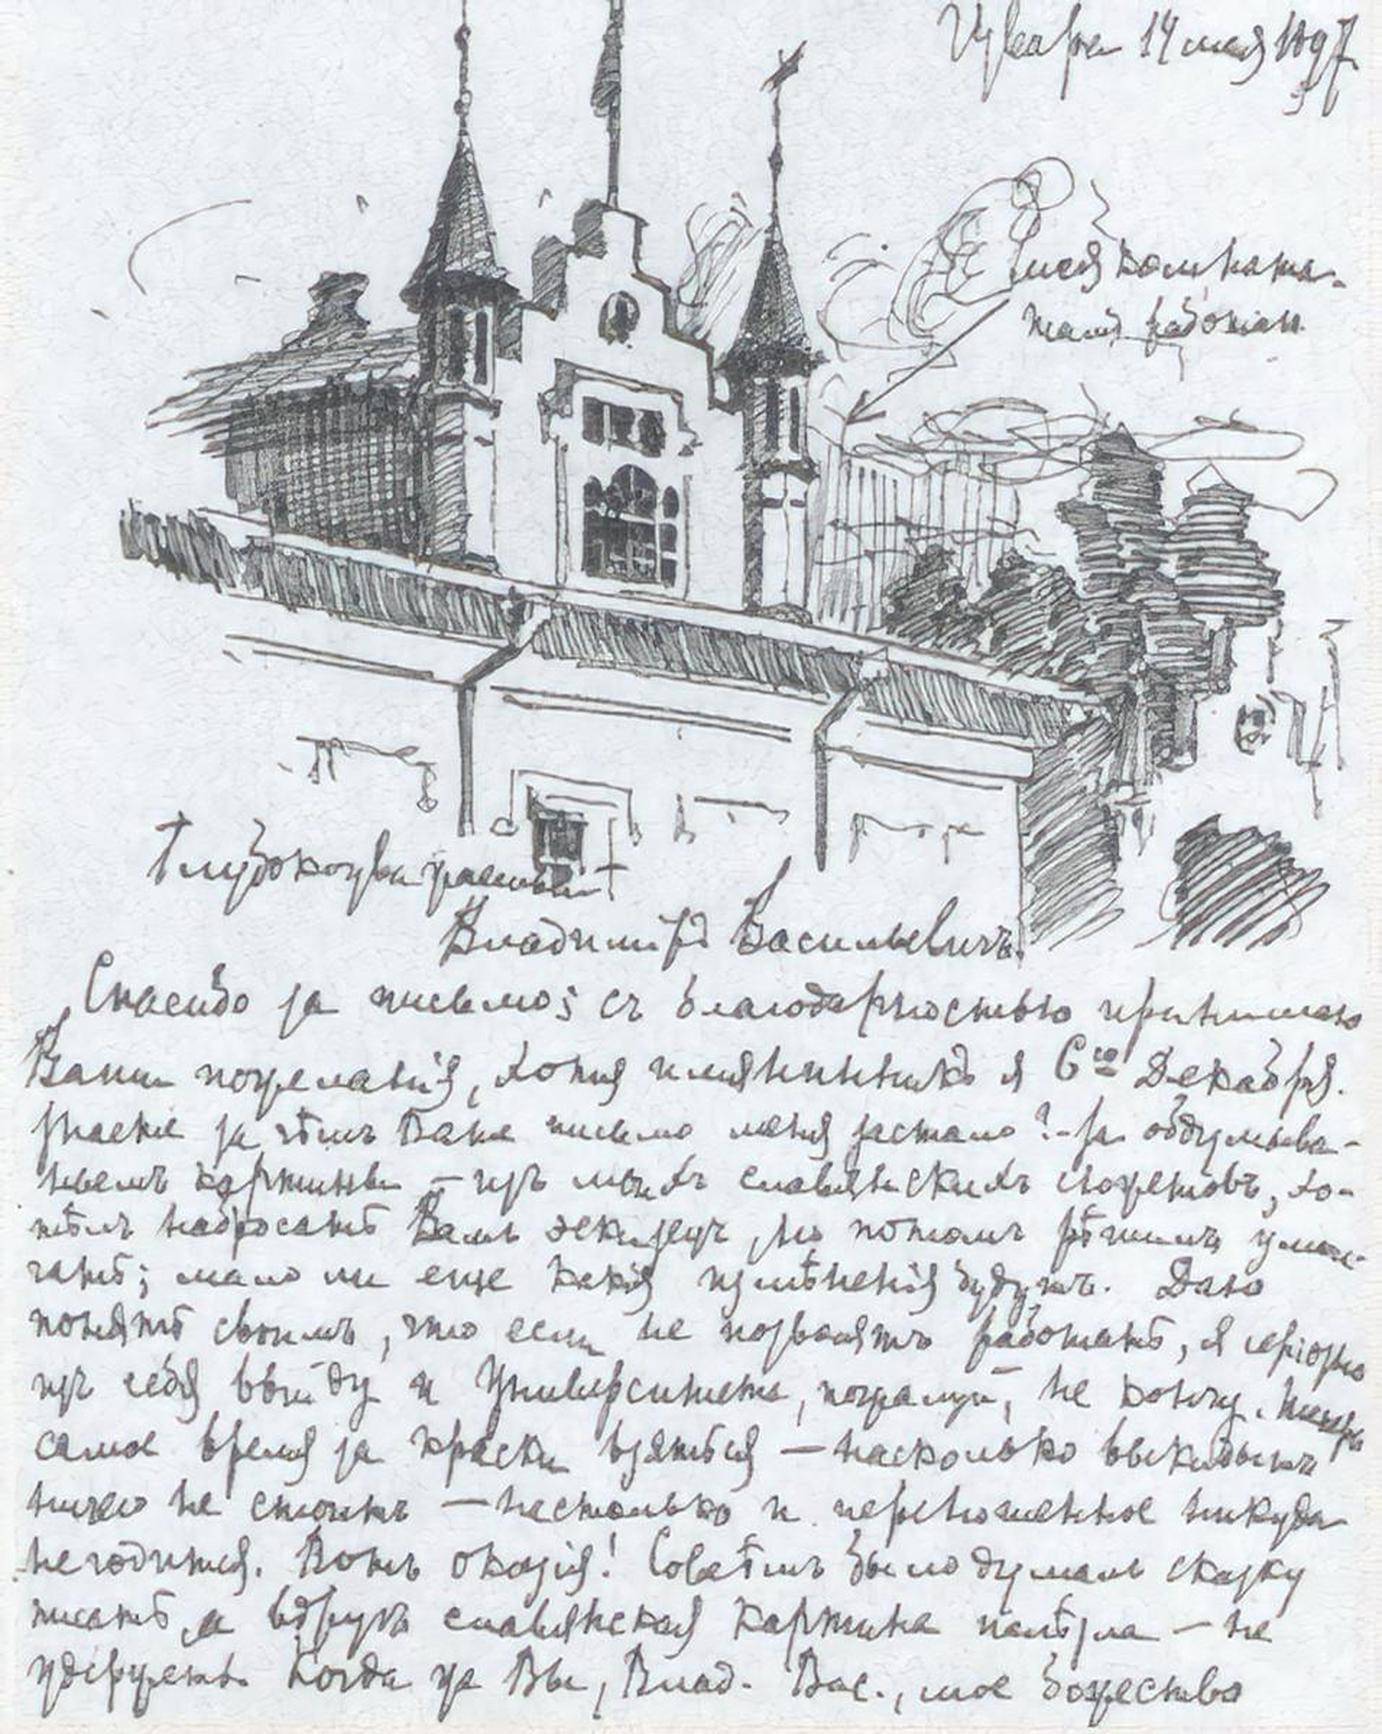 Извара 14 мая 1897
моя комната
тамъ работаю
Глубокоуважаемый
Владиміръ Васильевичъ.
Спасибо за письмо; съ благодарностью принимаю
Ваши пожеланія, хотя имянинникъ я 6го Декабря.
Знаете за чѣмъ Ваше письмо меня застало? - За обдумыва-
ньемъ картины – изъ моихъ славянскихъ сюжетовъ, хо-
тѣлъ набросать Вамъ эскизецъ, но потомъ рѣшилъ умол-
чать; мало ли еще какія измѣненія будутъ. Даю
понять своимъ, что если не позволятъ работать, я серіозно
изъ себя выйду и Университета, пожалуй, не кончу. Теперь
самое время за краски взяться – насколько выкидышъ
ничего не стоитъ – настолько и переношенное никуда
не годится. Вотъ оказія! Совсѣмъ было думалъ сказку
писать, а вдругъ славянская картина полѣзла – не
удержать. Когда же Вы, Влад. Вас., мое божество